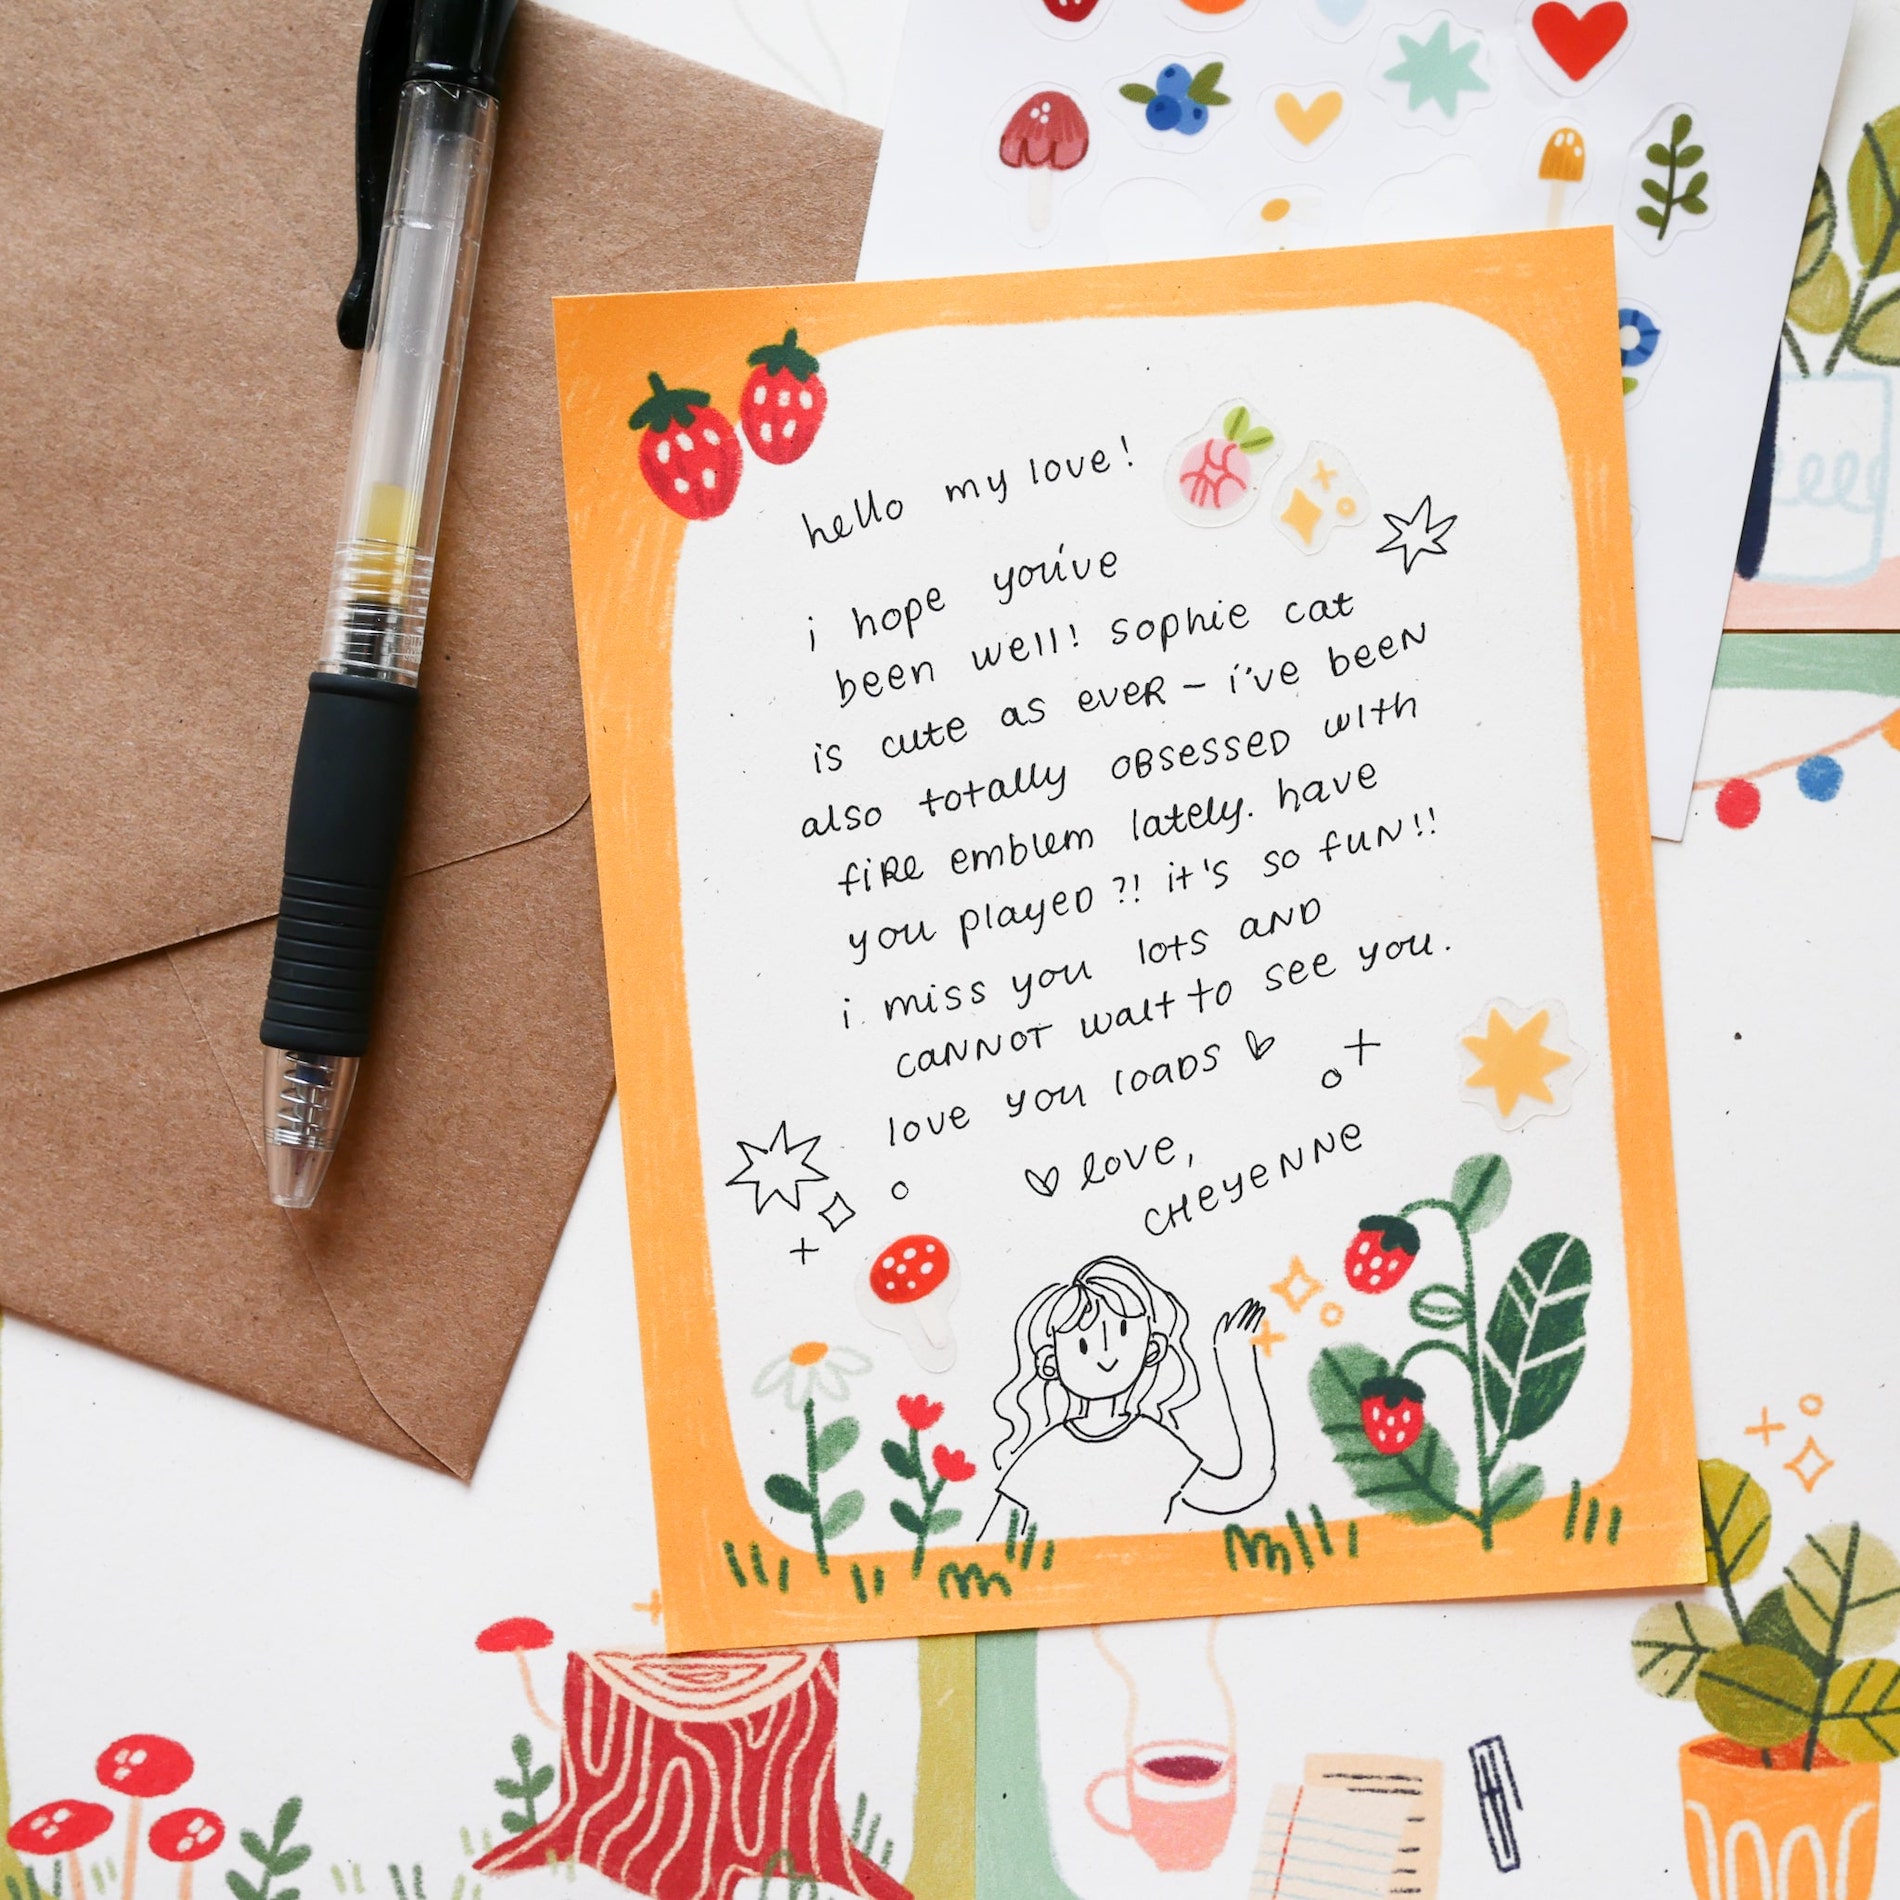 hello my love!
i hope you've
been well! sophie cat
is cute as ever - i've been
also totally obsessed with
fire emblem lately. have
you played?! it's so fun!!
i miss you lots and
cannot wait to see you.
love you loads ♡
♡ love,
Cheyenne